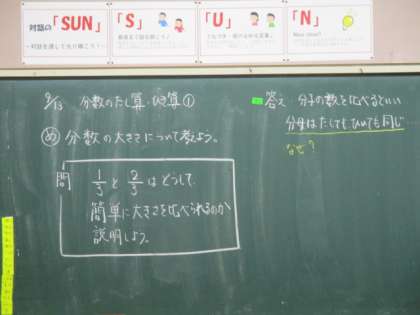 対話の「SUN」
~対話を通して光り輝こう!~
「S」
「U」
「N」
9/13 分数のたし算・ひき算①
め 分数の大きさについて考えよう。
問 1/5 と 2/5 はどうして、
簡単に大きさを比べられるのか
説明しよう。
答え 分子の数を比べるといい
分母はたしてもひいても同じ
なぜ?